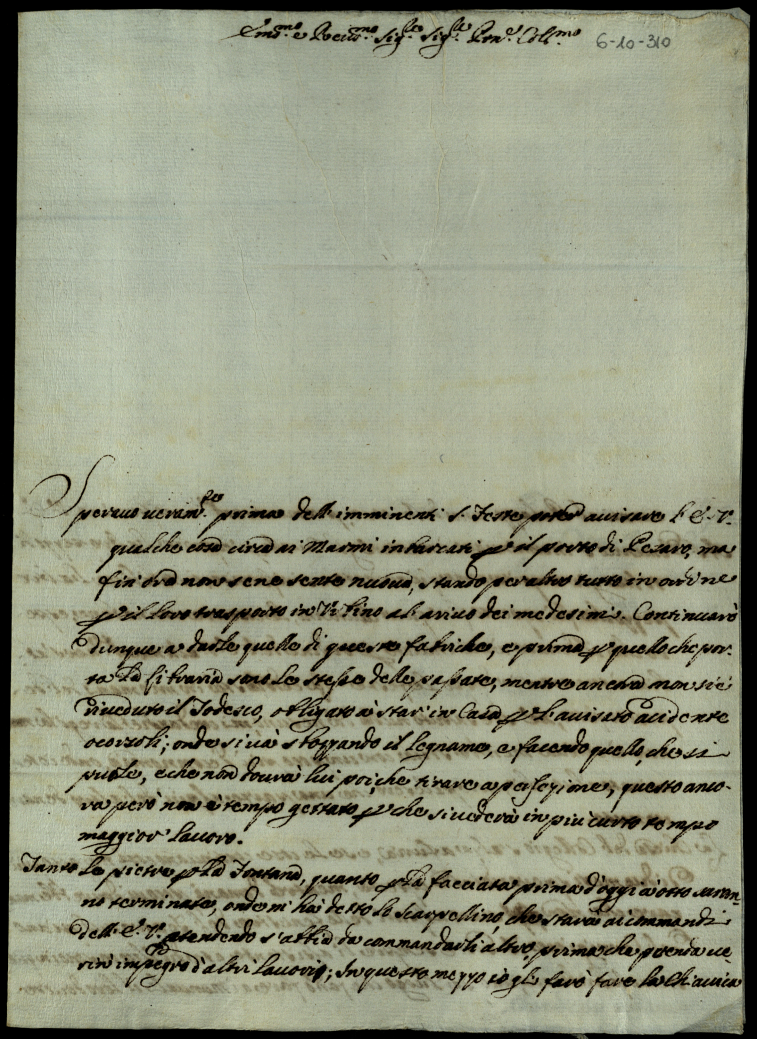 Em.mo e Rev.mo Sig.re Sig.re Pron.e Col.mo 6-10-310
Speravo veram.te prima dell'imminenti S. Feste poter avisare l'E. V.
qualche cosa circa ai Marmi imbarcati per il porto di Pesaro, ma
fin ora non se ne sente nuova, stando per altro tutto in ordine
per il loro trasporto in Urbino al arivo dei medesimi. Continuarò
dunque a darle quelle di queste fabriche, e prima per quello che por-
ta la libraria sono le stesse delle passate, mentre ancora non si è
riveduto il Todesco, obligato a star in Casa per l'avisato accidente
ocorsoli; onde si và sbozzando il legname, e facendo quello, che si
puole, e che non dourà lui poi, che tirare a perfezione, questo anco-
ra però non è tempo gettato per che si vederà in più curto tempo
maggior lavoro.
Tanto le pietre per la fontana, quanto per la facciata prima d'oggi a otto saran-
no terminate, onde m'ha detto lo scarpellino, che starà ai commandi
dell'E. V. atendendo s'abbia da commandarli altro, prima che prenda
in impegno d'altri lavori; In questo mezzo io gli farò fare la Chiavica